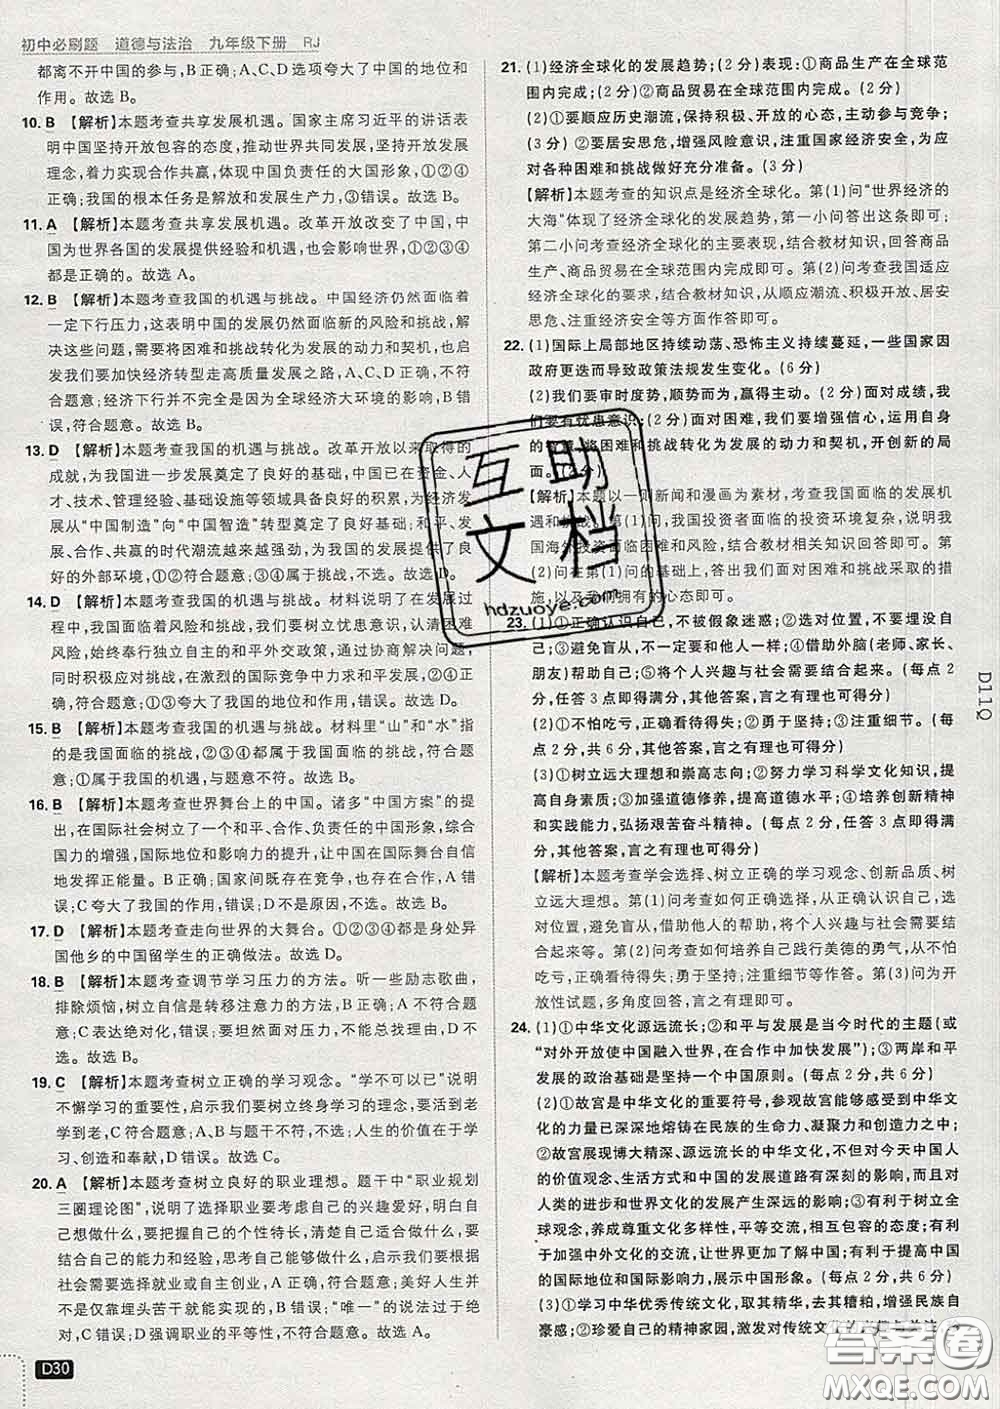 初中必刷题 道德与法治 九年级下册 RJ
都离不开中国的参与,B正确;A、C、D选项夸大了中国的地位和
作用。故选B。
10. B 【解析】本题考查共享发展机遇。国家主席习近平的讲话表
明中国坚持开放包容的态度,推动世界共同发展,坚持开放发展
理念,走和平发展道路,体现中国负责任的大国形象,①②④正
确;我国的根本任务是解放和发展生产力,③错误。故选B。
11. A 【解析】本题考查共享发展机遇。改革开放改变了中国,中
国为世界各国的发展提供经验和机遇,也会影响世界,①②③④
都是正确的。故选A。
12. B 【解析】本题考查我国的机遇与挑战。中国经济仍然面临着
一定下行压力,这表明中国的发展仍然面临新的风险和挑战,
解决这些问题,需要将困难和挑战转化为发展的动力和契机,也启
发我们要加快经济转型走高质量发展之路,A、C、D不符合题意;
经济下行并不完全是因为全球经济大环境的影响,B错误,
符合题意。故选B。
13. D 【解析】本题考查我国的机遇与挑战。改革开放以来取得的
成就,为我国进一步发展奠定了良好的基础,中国已在资金、人
才、技术、管理经验、基础设施等领域具备良好的积累,为经济发
展从“中国制造”向“中国智造”转型奠定了良好基础;和平、发
展、合作、共赢的时代潮流越来越强劲,为我国发展提供了良
好的外部环境,①②符合题意;③④属于挑战,不选。故选D。
14. D 【解析】本题考查我国的机遇与挑战。材料说明了在发展过
程中,我国面临着风险和挑战,我们要树立忧患意识,认清困难
风险,始终奉行独立自主的和平外交政策,通过协商解决问题,
同时积极应对挑战,在激烈的国际竞争中力求和平发展,D正
确;A、B、C夸大了我国的积极作用,错误。故选D。
15. B 【解析】本题考查我国的机遇与挑战。材料里“山”和“水”指
的是我国面临的挑战,②③④都属于我国面临的挑战,符合题
意;①属于我国的机遇,与题意不符。故选B。
16. B 【解析】本题考查世界舞台上的中国。诸多“中国方案”的提
出,在国际社会树立了一个和平、合作、负责任的中国形象,综合
国力的增强,国际地位和影响力的提升,让中国在国际舞台自信
地发挥正能量。故选B。国家间既存在竞争,也存在合作,A错
误;C夸大了我国的作用,错误;D不符合题意。故选B。
17. D 【解析】本题考查走向世界的大舞台。①②③④都是身处异
国他乡的中国留学生的正确做法。故选D。
18. B 【解析】本题考查调节学习压力的方法。听一些励志歌曲,
排除烦恼,树立自信是转移注意力的方法,B正确;A不符合题意;
C表达绝对化,错误;要坦然面对压力,不能总找理由,D不
选。故选B。
19. C 【解析】本题考查树立正确的学习观念。“学不可以已”说明
不懈学习的意义,启示我们要树立终身学习的理念,要活到老
学到老,C符合题意;A、B与题干不符,不选;人生的价值在于学
习、创造和奉献,D错误。故选C。
20. A 【解析】本题考查树立良好的职业理想。题干中“职业规划
三圈理论图”,说明了选择职业要考虑自己的兴趣爱好,明白自己
想要做什么,要把握自己的个性特长,清楚自己适合做什么,要
结合自己的能力和经验,思考自己能够做什么,启示我们要根据
社会需要选择就业或自主创业,A正确,符合题意;美好人生并
不是仅靠埋头苦干就能实现的,B错误;“唯一”的说法过于绝
对,C错误;D强调职业的平等性,错误。故选A。
D30
21. (1)经济全球化的发展趋势;(2分)表现:①商品生产在全球范
围内完成;(2分)②商品贸易在全球范围内完成。(2分)
(2)①要顺应历史潮流,保持积极、开放的心态,主动参与竞争;
(3分)②要居安思危,增强风险意识,注重国家经济安全,为应
对各种困难和挑战做好充分准备。(3分)
【解析】本题考查的知识点是经济全球化。第(1)问“世界经济的
大海”体现了经济全球化的发展趋势,第一小问答出这条即可;
第二小问考查经济全球化的主要表现,结合教材知识,回答商品
生产、商品贸易在全球范围内完成即可。第(2)问考查我国适应
经济全球化的要求,结合教材知识,从顺应潮流、积极开放、居安
思危、注重经济安全等方面作答即可。
22. (1)国际上局部地区持续动荡、恐怖主义持续蔓延,一些国家因
政府更迭而导致政策法规发生变化。(6分)
(2)我们要审时度势,顺势而为,赢得主动。(2分)面对成绩,我
们要有忧患意识;(2分)面对困难,我们要增强信心,运用自身
的智慧,将困难和挑战转化为发展的动力和契机,开创新的局
面。(2分)
【解析】本题以一则新闻和漫画为素材,考查我国面临的发展机
遇和挑战。第(1)问,我国投资者面临的投资环境复杂,说明我
国海外投资面临困难和风险,结合教材相关知识回答即可。第
(2)问在第(1)问的基础上,答出我们面对困难和挑战采取的措
施,以及我们拥有的心态即可。
23. (1)①正确认识自己,不被假象迷惑;②选对位置,不要见异思
迁;③避免盲从,不一定要和他人一样;④借助外脑(老师、家长、
朋友)帮助自己;⑤将个人兴趣与社会需要结合起来。(每点2
分,任答3点即得满分,其他答案,言之有理也可得分)
(2)①不怕吃亏,不仅看重得失;②勇于坚持;③注重细节。(每
点2分,共6分,其他答案,言之有理也可得分)
(3)①树立远大理想和崇高志向;②努力学习科学文化知识,提
高自身素质;③加强道德修养,提高道德水平;④培养创新精神
和实践能力,弘扬艰苦奋斗精神。(每点2分,任答3点得满分,
其他答案,言之有理也可得分)
【解析】本题考查学会选择、树立正确的学习观念、创新品质、树
立远大理想。第(1)问考查学会选择,从正确认识自己,选对位
置,避免盲从,借助他人的帮助,将个人兴趣与社会需要结合起
来等作答。第(2)问考查如何培养自己践行美德的勇气,从不怕
吃亏、正确看待得失;勇于坚持;注重细节等作答。第(3)问为开
放性试题,多角度回答,言之有理即可。
24. (1)①中华文化源远流长;②和平与发展是当今时代的主题(或
“对外开放使中国融入世界,在合作中加快发展”);③两岸和平
发展的政治基础是坚持一个中国原则。(每点2分,共6分)
(2)①故宫是中华文化的重要符号,参观故宫能够感受中华文化
已深深地熔铸在民族的生命力、凝聚力和创造力之中;②
故宫展现博大精深、源远流长的中华文化,对世界其他国人的
价值观念、生活方式和中国的发展道路有深刻的影响,而且对
人类的进步和世界文化的发展产生深远的影响;③有利于树立全
球观念,养成尊重文化多样性,平等交流,相互包容的态度;有利
于加强中外文化的交流,让世界更深入地了解中国;有利于提高中国
的国际地位和国际影响力,展示中国形象。(每点2分,共6分)
(3)①学习中华优秀传统文化,取其精华,去其糟粕,增强民族自
豪感;②珍爱自己的精神家园,激发对传统文化的兴趣与关注
D11Q
互助文档
hdzuoye.com
答案圈
MXQE.COM